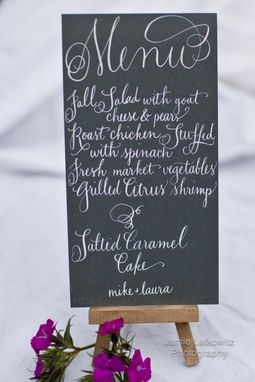 Menu
Fall Salad with goat
cheese & pears
Roast chicken, Stuffed
with spinach
Fresh market vegetables
Grilled Citrus shrimp
Salted Caramel
Cake
mike + laura
Jamie Lefkowitz
Photography